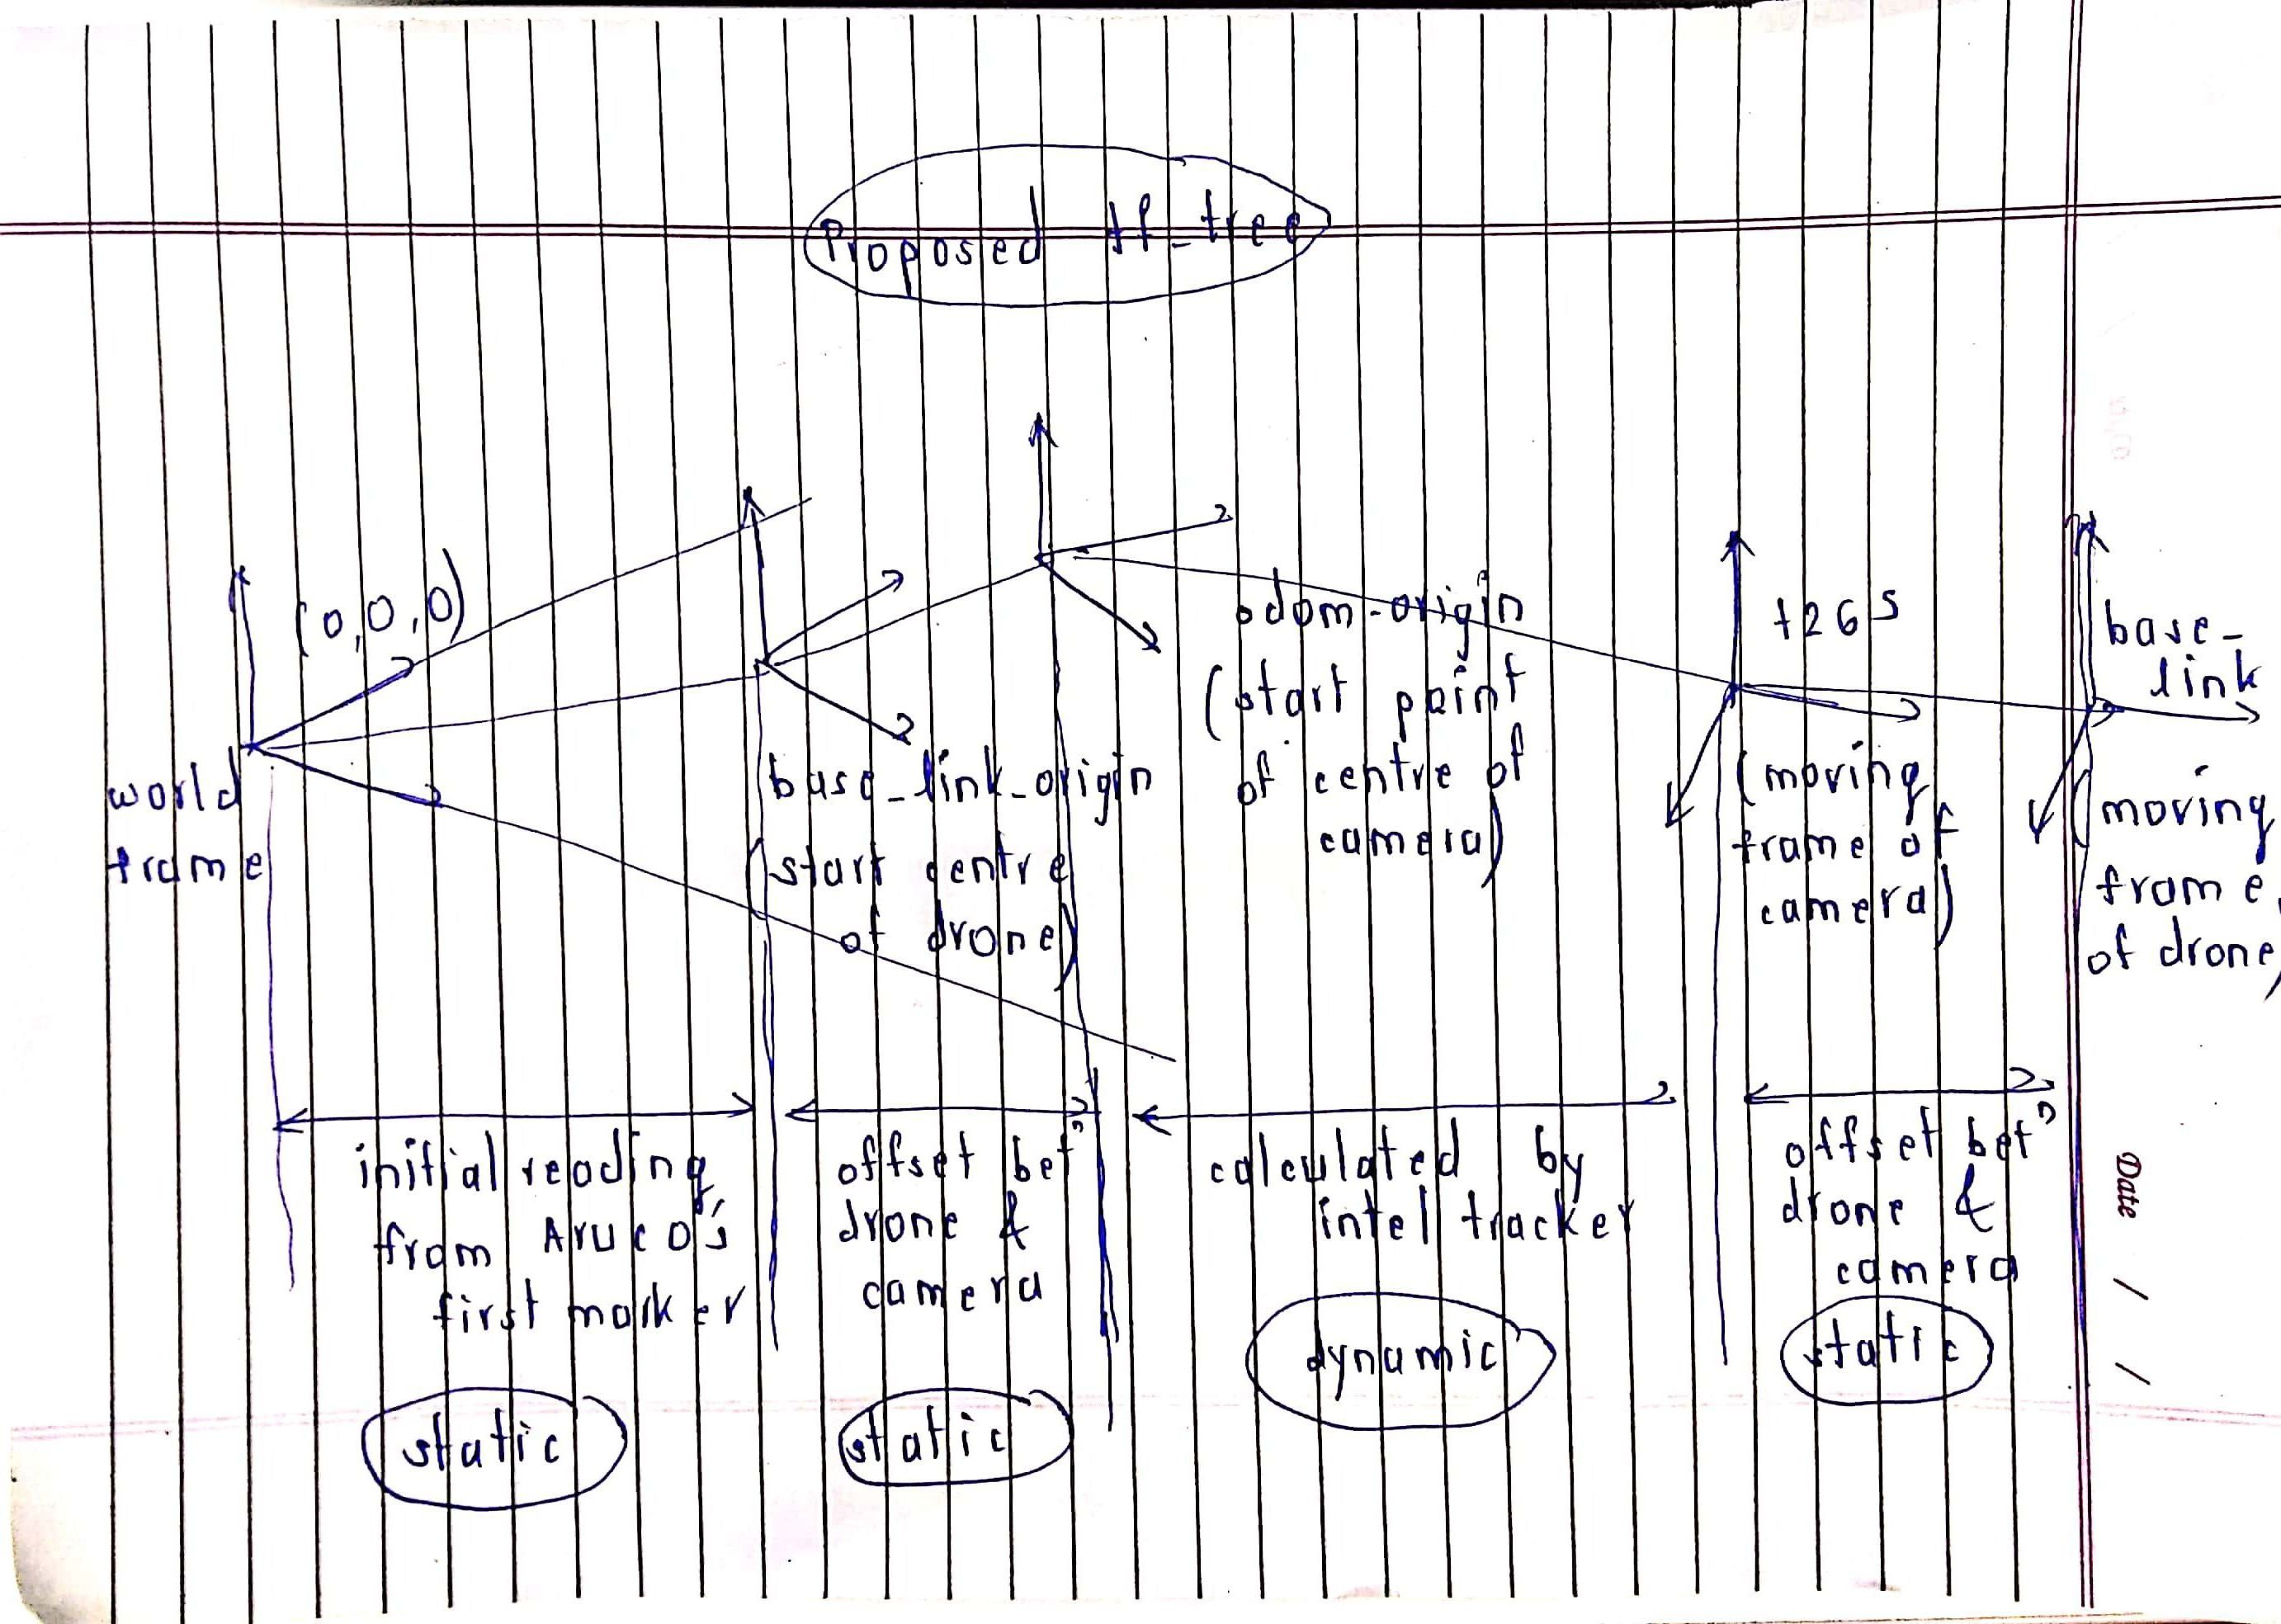 Proposed tf_tree
(0,0,0)
world
frame
base_link_origin
(start centre
of drone)
odom-origin
(start point
of centre of
camera)
t265
(moving
frame of
camera)
base-
link
(moving
frame
of drone)
initial reading
from Aruco's
first marker
static
offset betn
drone &
camera
static
calculated by
intel tracker
dynamic
offset betn
drone &
camera
static
Date / /